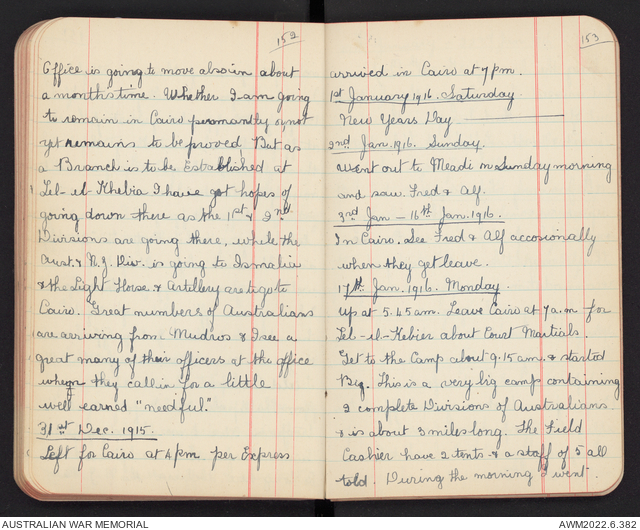 152
Office is going to move also in about
a months time. Whether I am going
to remain in Cairo permantly or not
yet remains to be proved. But as
a Branch is to be Established at
Tel-el-Khebia I have got hopes of
going down there as the 1st & 2nd
Divisions are going there, while the
Aust. & N.Z. Div. is going to Ismalia
& the Light Horse & Artillery are to go to
Cairo. Great numbers of Australians
are arriving from Mudros & I see a
great many of their officers at the office
when they call in for a little
well earned "needful."
31st Dec. 1915.
Left for Cairo at 4 pm per Express
153
arrived in Cairo at 7 pm.
1st January 1916. Saturday
New Years Day
2nd Jan. 1916. Sunday.
Went out to Meadi on Sunday morning
and saw Fred & Alf.
3rd Jan - 16th Jan. 1916.
In Cairo. See Fred & Alf accosionally
when they get leave.
17th Jan. 1916. Monday.
Up at 5.45 am. Leave Cairo at 7 a.m for
Tel-el-Kebier about Court Martials.
Get to the Camp about 9.15 am. & started
Biz. This is a very big camp containing
2 complete Divisions of Australians
& is about 3 miles long. The Field
Cashier have 2 tents & a staff of 5 all
told. During the morning I went
AUSTRALIAN WAR MEMORIAL
AWM2022.6.382